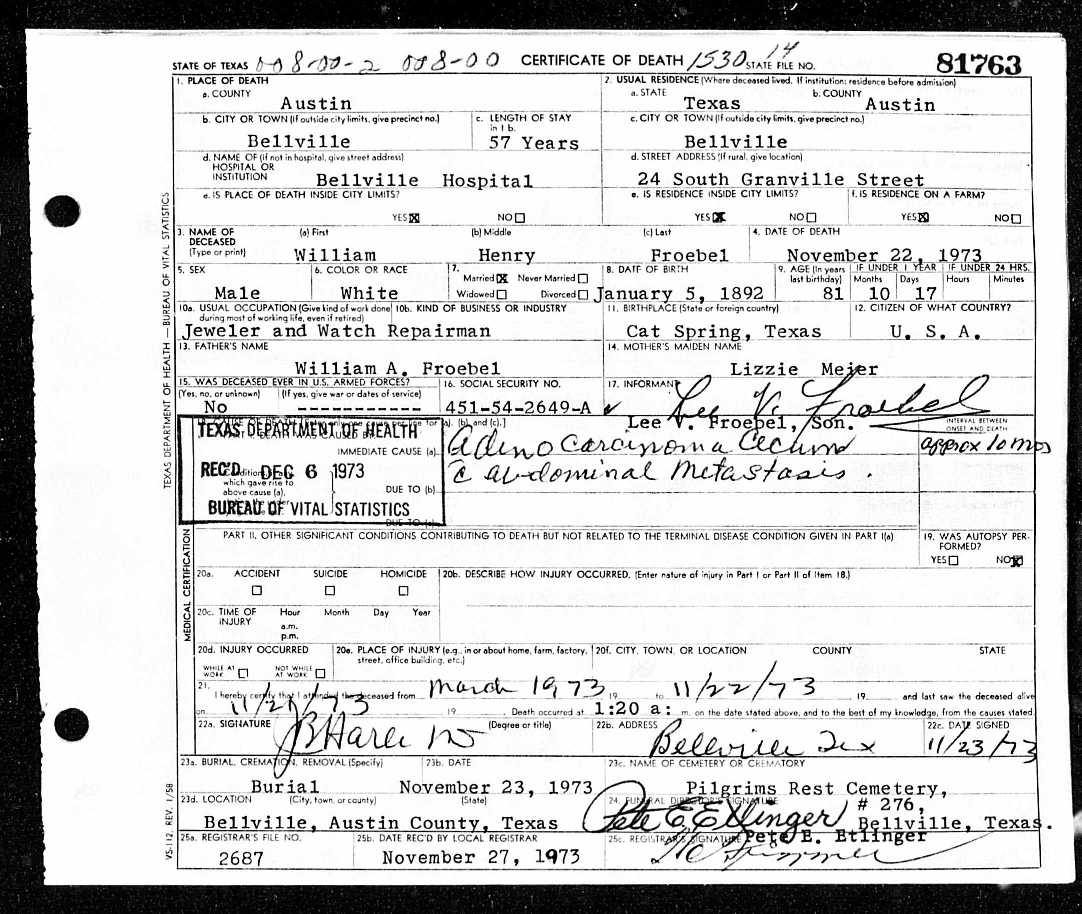 STATE OF TEXAS 008-00-2 008-00 CERTIFICATE OF DEATH 1530 14 STATE FILE NO. 81763
1. PLACE OF DEATH
a. COUNTY
Austin
2. USUAL RESIDENCE (Where deceased lived. If institution: residence before admission)
a. STATE b. COUNTY
Texas Austin
b. CITY OR TOWN (If outside city limits, give precinct no.)
Bellville
c. LENGTH OF STAY
in 1 b.
57 Years
c. CITY OR TOWN (If outside city limits, give precinct no.)
Bellville
d. NAME OF (If not in hospital, give street address)
HOSPITAL OR
INSTITUTION Bellville Hospital
d. STREET ADDRESS (If rural, give location)
24 South Granville Street
e. IS PLACE OF DEATH INSIDE CITY LIMITS?
YES☒ NO☐
e. IS RESIDENCE INSIDE CITY LIMITS?
YES☒ NO☐
f. IS RESIDENCE ON A FARM?
YES☒ NO☐
3. NAME OF
DECEASED
(Type or print)
(a) First (b) Middle (c) Last
William Henry Froebel
4. DATE OF DEATH
November 22, 1973
5. SEX
Male
6. COLOR OR RACE
White
7.
Married☒ Never Married☐
Widowed☐ Divorced☐
8. DATE OF BIRTH
January 5, 1892
9. AGE (In years
last birthday)
81
IF UNDER 1 YEAR IF UNDER 24 HRS.
Months Days Hours Minutes
10 17
10a. USUAL OCCUPATION (Give kind of work done
during most of working life, even if retired)
10b. KIND OF BUSINESS OR INDUSTRY
Jeweler and Watch Repairman
11. BIRTHPLACE (State or foreign country)
Cat Spring, Texas
12. CITIZEN OF WHAT COUNTRY?
U. S. A.
13. FATHER'S NAME
William A. Froebel
14. MOTHER'S MAIDEN NAME
Lizzie Meier
15. WAS DECEASED EVER IN U.S. ARMED FORCES?
(Yes, no, or unknown) (If yes, give war or dates of service)
No -----------
16. SOCIAL SECURITY NO.
451-54-2649-A
17. INFORMANT
Lee V. Froebel
Lee V. Froebel, Son.
(a), (b), and (c).]
INTERVAL BETWEEN
ONSET AND DEATH
TEXAS DEPARTMENT OF HEALTH
REC'D DEC 6 1973
BUREAU OF VITAL STATISTICS
IMMEDIATE CAUSE (a)
Adenocarcinoma Cecum
approx 10 mos
which gave rise to
above cause (a),
DUE TO (b)
c̄ abdominal Metastasis.
DUE TO (c)
PART II. OTHER SIGNIFICANT CONDITIONS CONTRIBUTING TO DEATH BUT NOT RELATED TO THE TERMINAL DISEASE CONDITION GIVEN IN PART I(a)
19. WAS AUTOPSY PER-
FORMED?
YES☐ NO☒
20a. ACCIDENT SUICIDE HOMICIDE
☐ ☐ ☐
20b. DESCRIBE HOW INJURY OCCURRED. (Enter nature of injury in Part I or Part II of Item 18.)
20c. TIME OF
INJURY
Hour Month Day Year
a.m.
p.m.
20d. INJURY OCCURRED
WHILE AT
WORK ☐
NOT WHILE
AT WORK ☐
20e. PLACE OF INJURY (e.g., in or about home, farm, factory,
street, office building, etc.)
20f. CITY, TOWN, OR LOCATION COUNTY STATE
21.
I hereby certify that I attended the deceased from March 1973 19 to 11/22/73 19 and last saw the deceased alive
on 11/21/73 19 Death occurred at 1:20 a: m. on the date stated above, and to the best of my knowledge, from the causes stated.
22a. SIGNATURE (Degree or title)
22b. ADDRESS
Bellville Tex
22c. DATE SIGNED
11/23/73
23a. BURIAL, CREMATION, REMOVAL (Specify)
Burial
23b. DATE
November 23, 1973
23c. NAME OF CEMETERY OR CREMATORY
Pilgrims Rest Cemetery,
23d. LOCATION (City, town, or county) (State)
Bellville, Austin County, Texas
24. FUNERAL DIRECTOR'S SIGNATURE
Pete E. Etlinger # 276,
Bellville, Texas.
Pete E. Etlinger
25a. REGISTRAR'S FILE NO.
2687
25b. DATE REC'D BY LOCAL REGISTRAR
November 27, 1973
25c. REGISTRAR'S SIGNATURE
TEXAS DEPARTMENT OF HEALTH — BUREAU OF VITAL STATISTICS
MEDICAL CERTIFICATION
VS-112 REV. 1/58